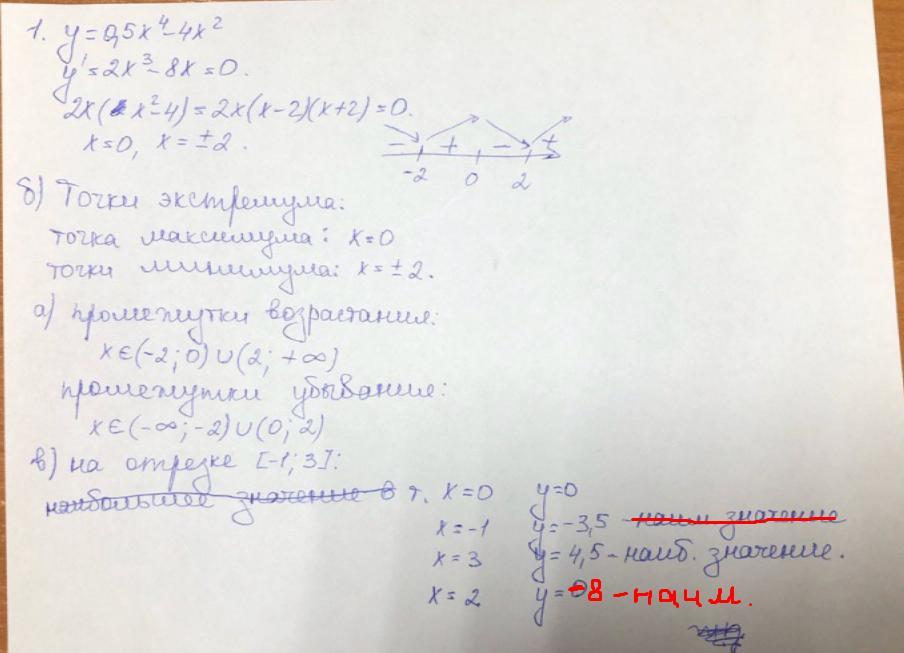 1. y = 0,5x⁴ - 4x²
y' = 2x³ - 8x = 0.
2x(x² - 4) = 2x(x-2)(x+2) = 0.
x=0, x = ±2.
- + - +
-2 0 2
б) Точки экстремума:
точка максимума: x=0
точки минимума: x = ±2.
а) промежутки возрастания:
x ∈ (-2; 0) ∪ (2; +∞)
промежутки убывания:
x ∈ (-∞; -2) ∪ (0; 2)
в) на отрезке [-1; 3]:
наибольшее значение в т. x=0 y=0
x=-1 y=-3,5 - наим значение
x=3 y=4,5 - наиб. значение.
x=2 y=-8 - наим.